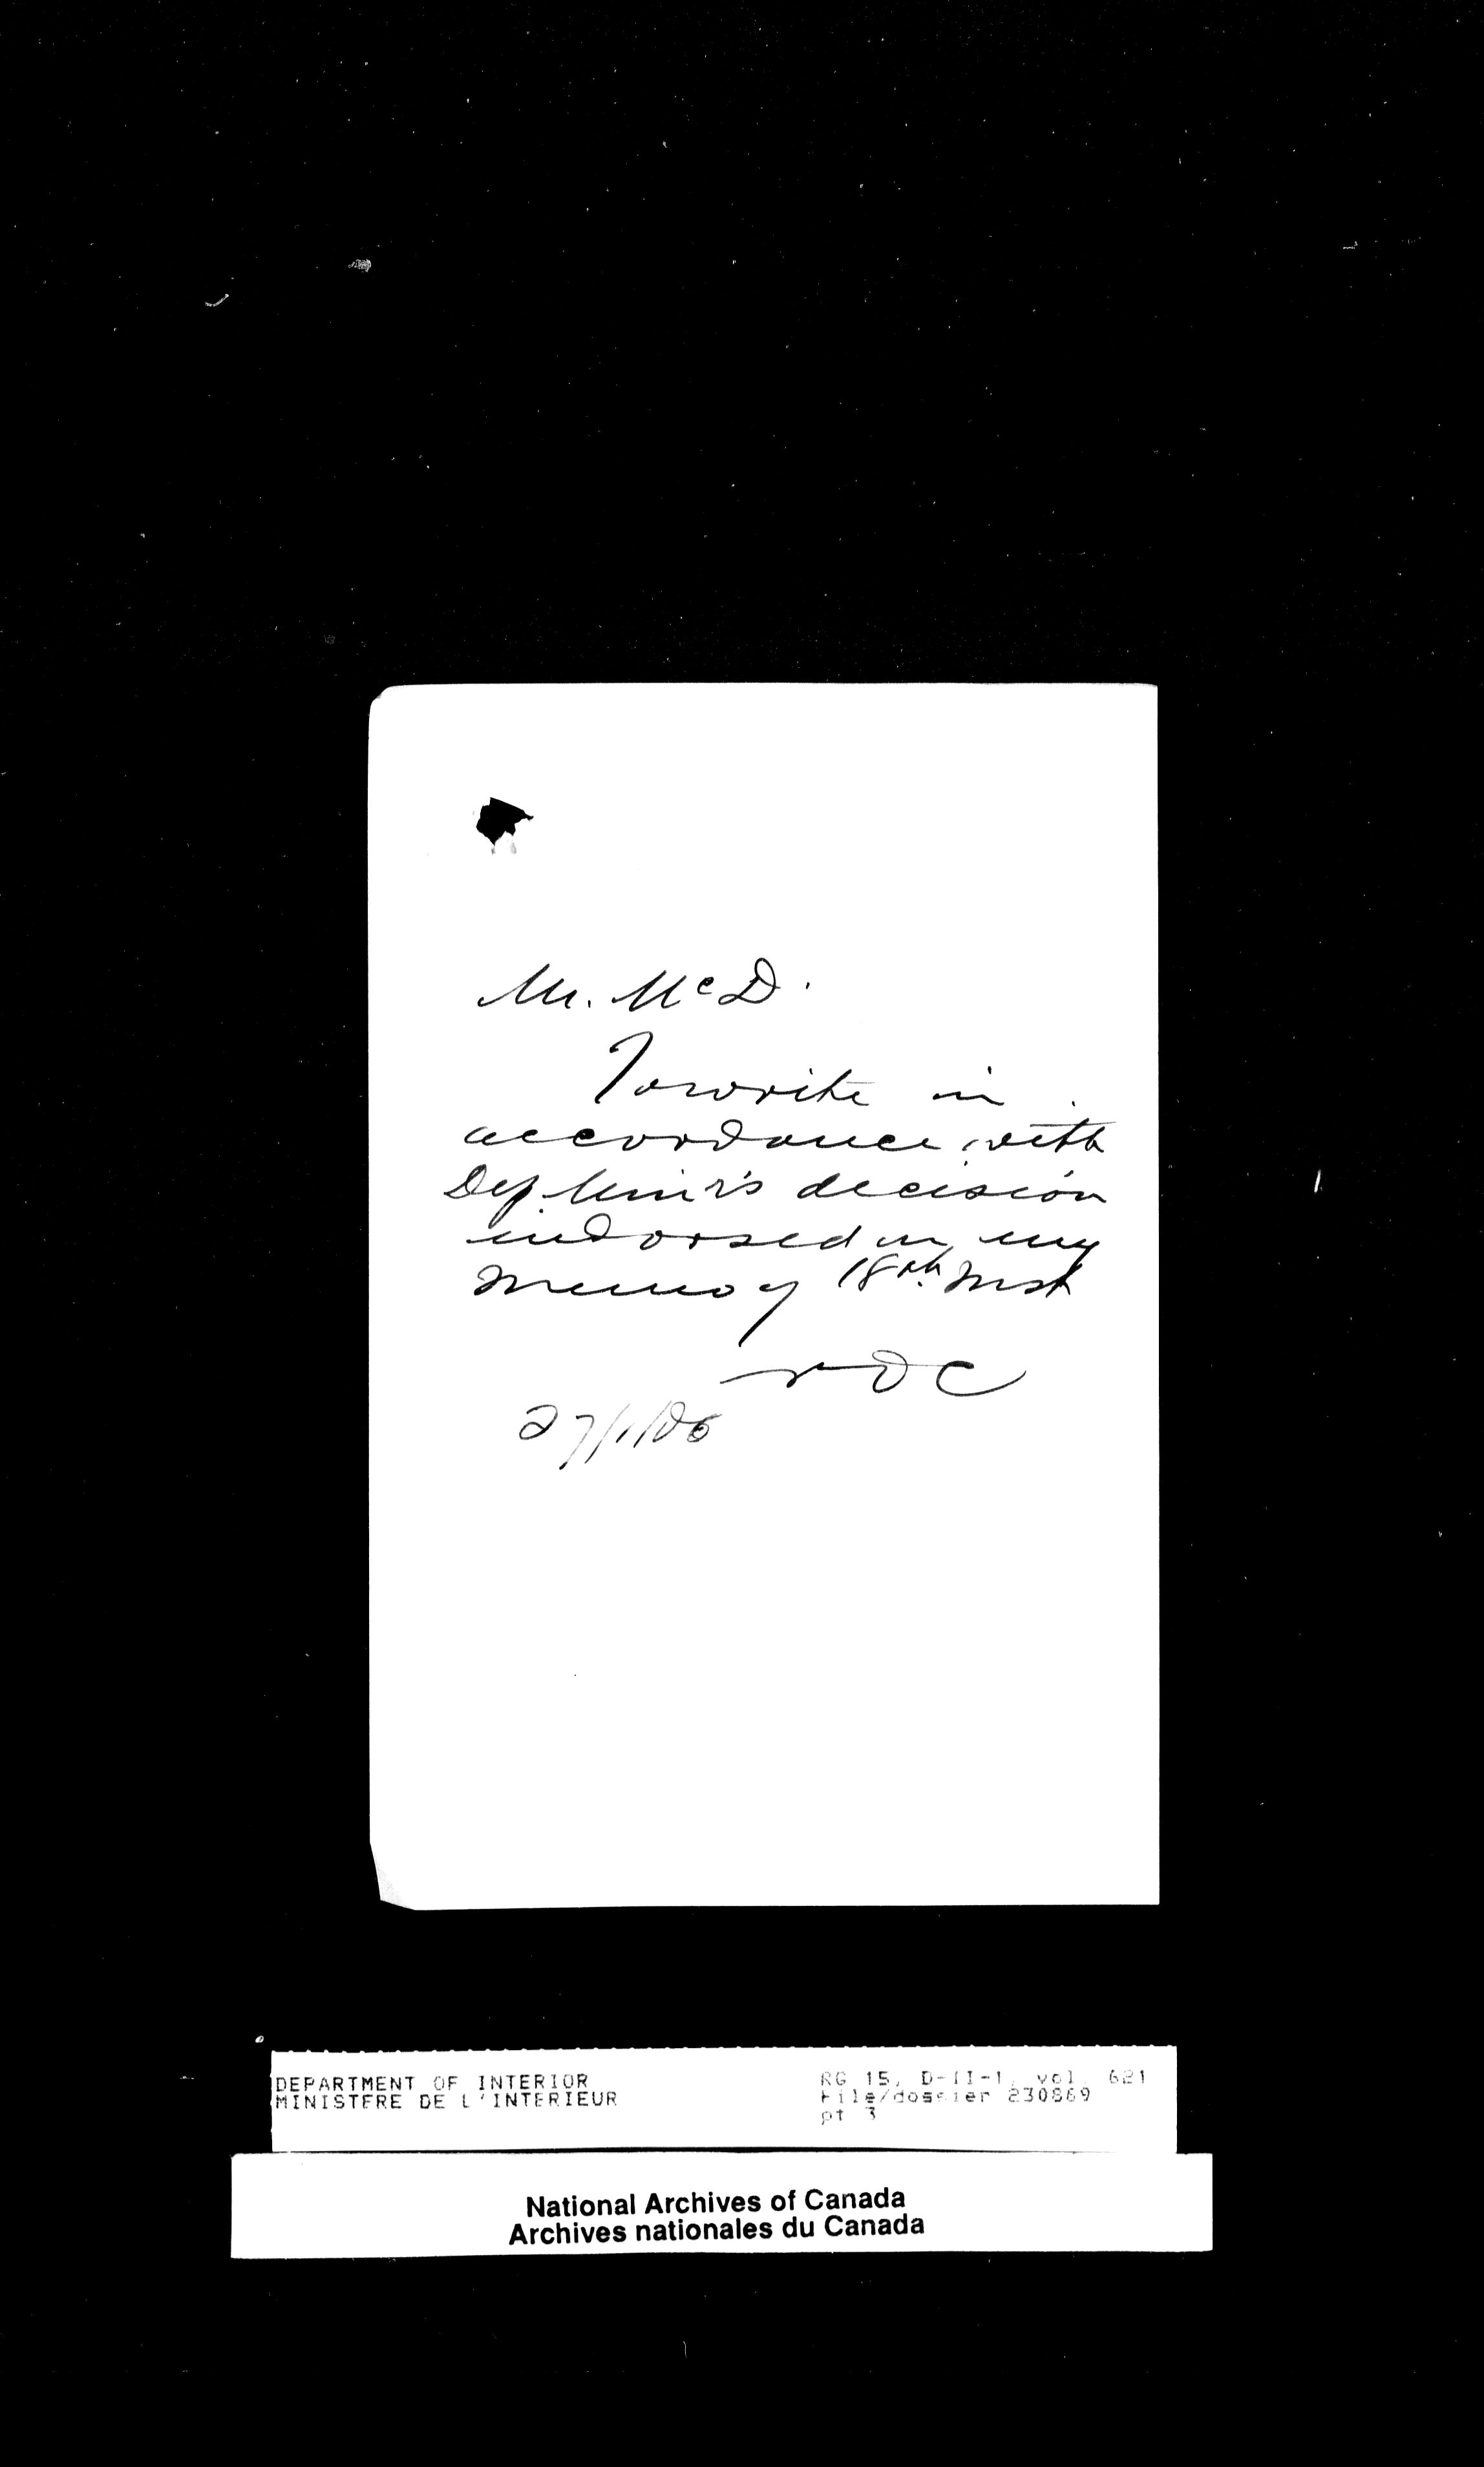 Mr. McD.
To write in
accordance with
Dep. Minr's decision
endorsed on my
Memo of 18th Inst
27/1/06
DEPARTMENT OF INTERIOR RG 15, D-II-1, vol. 621
MINISTERE DE L'INTERIEUR File/dossier 230869
pt 3
National Archives of Canada
Archives nationales du Canada